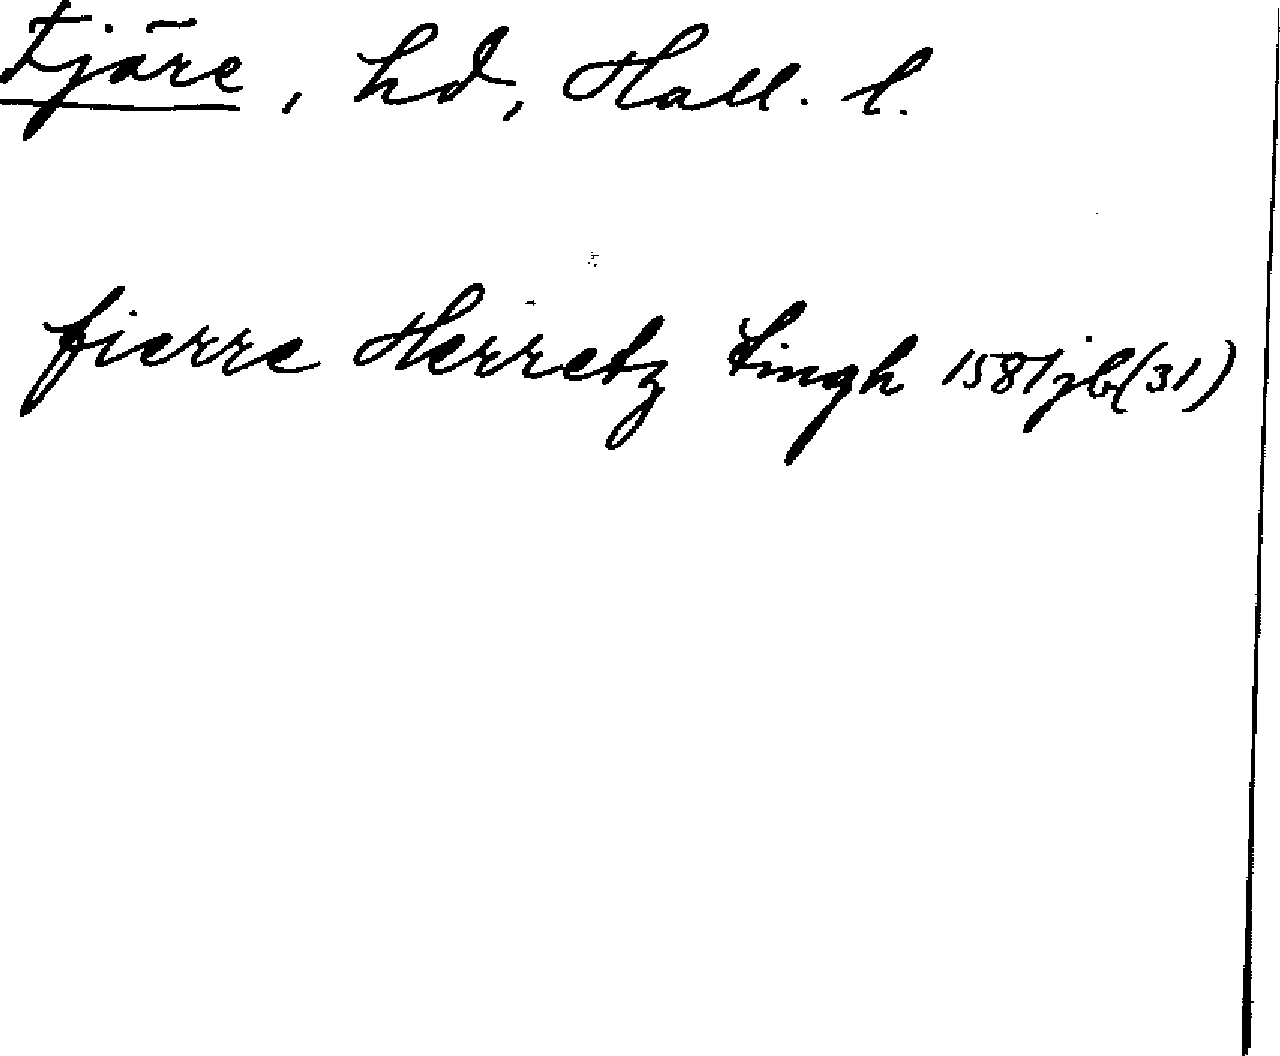 Fjäre, hd, Hall. l.
fierre Herretz tingh 1581 jb (31)